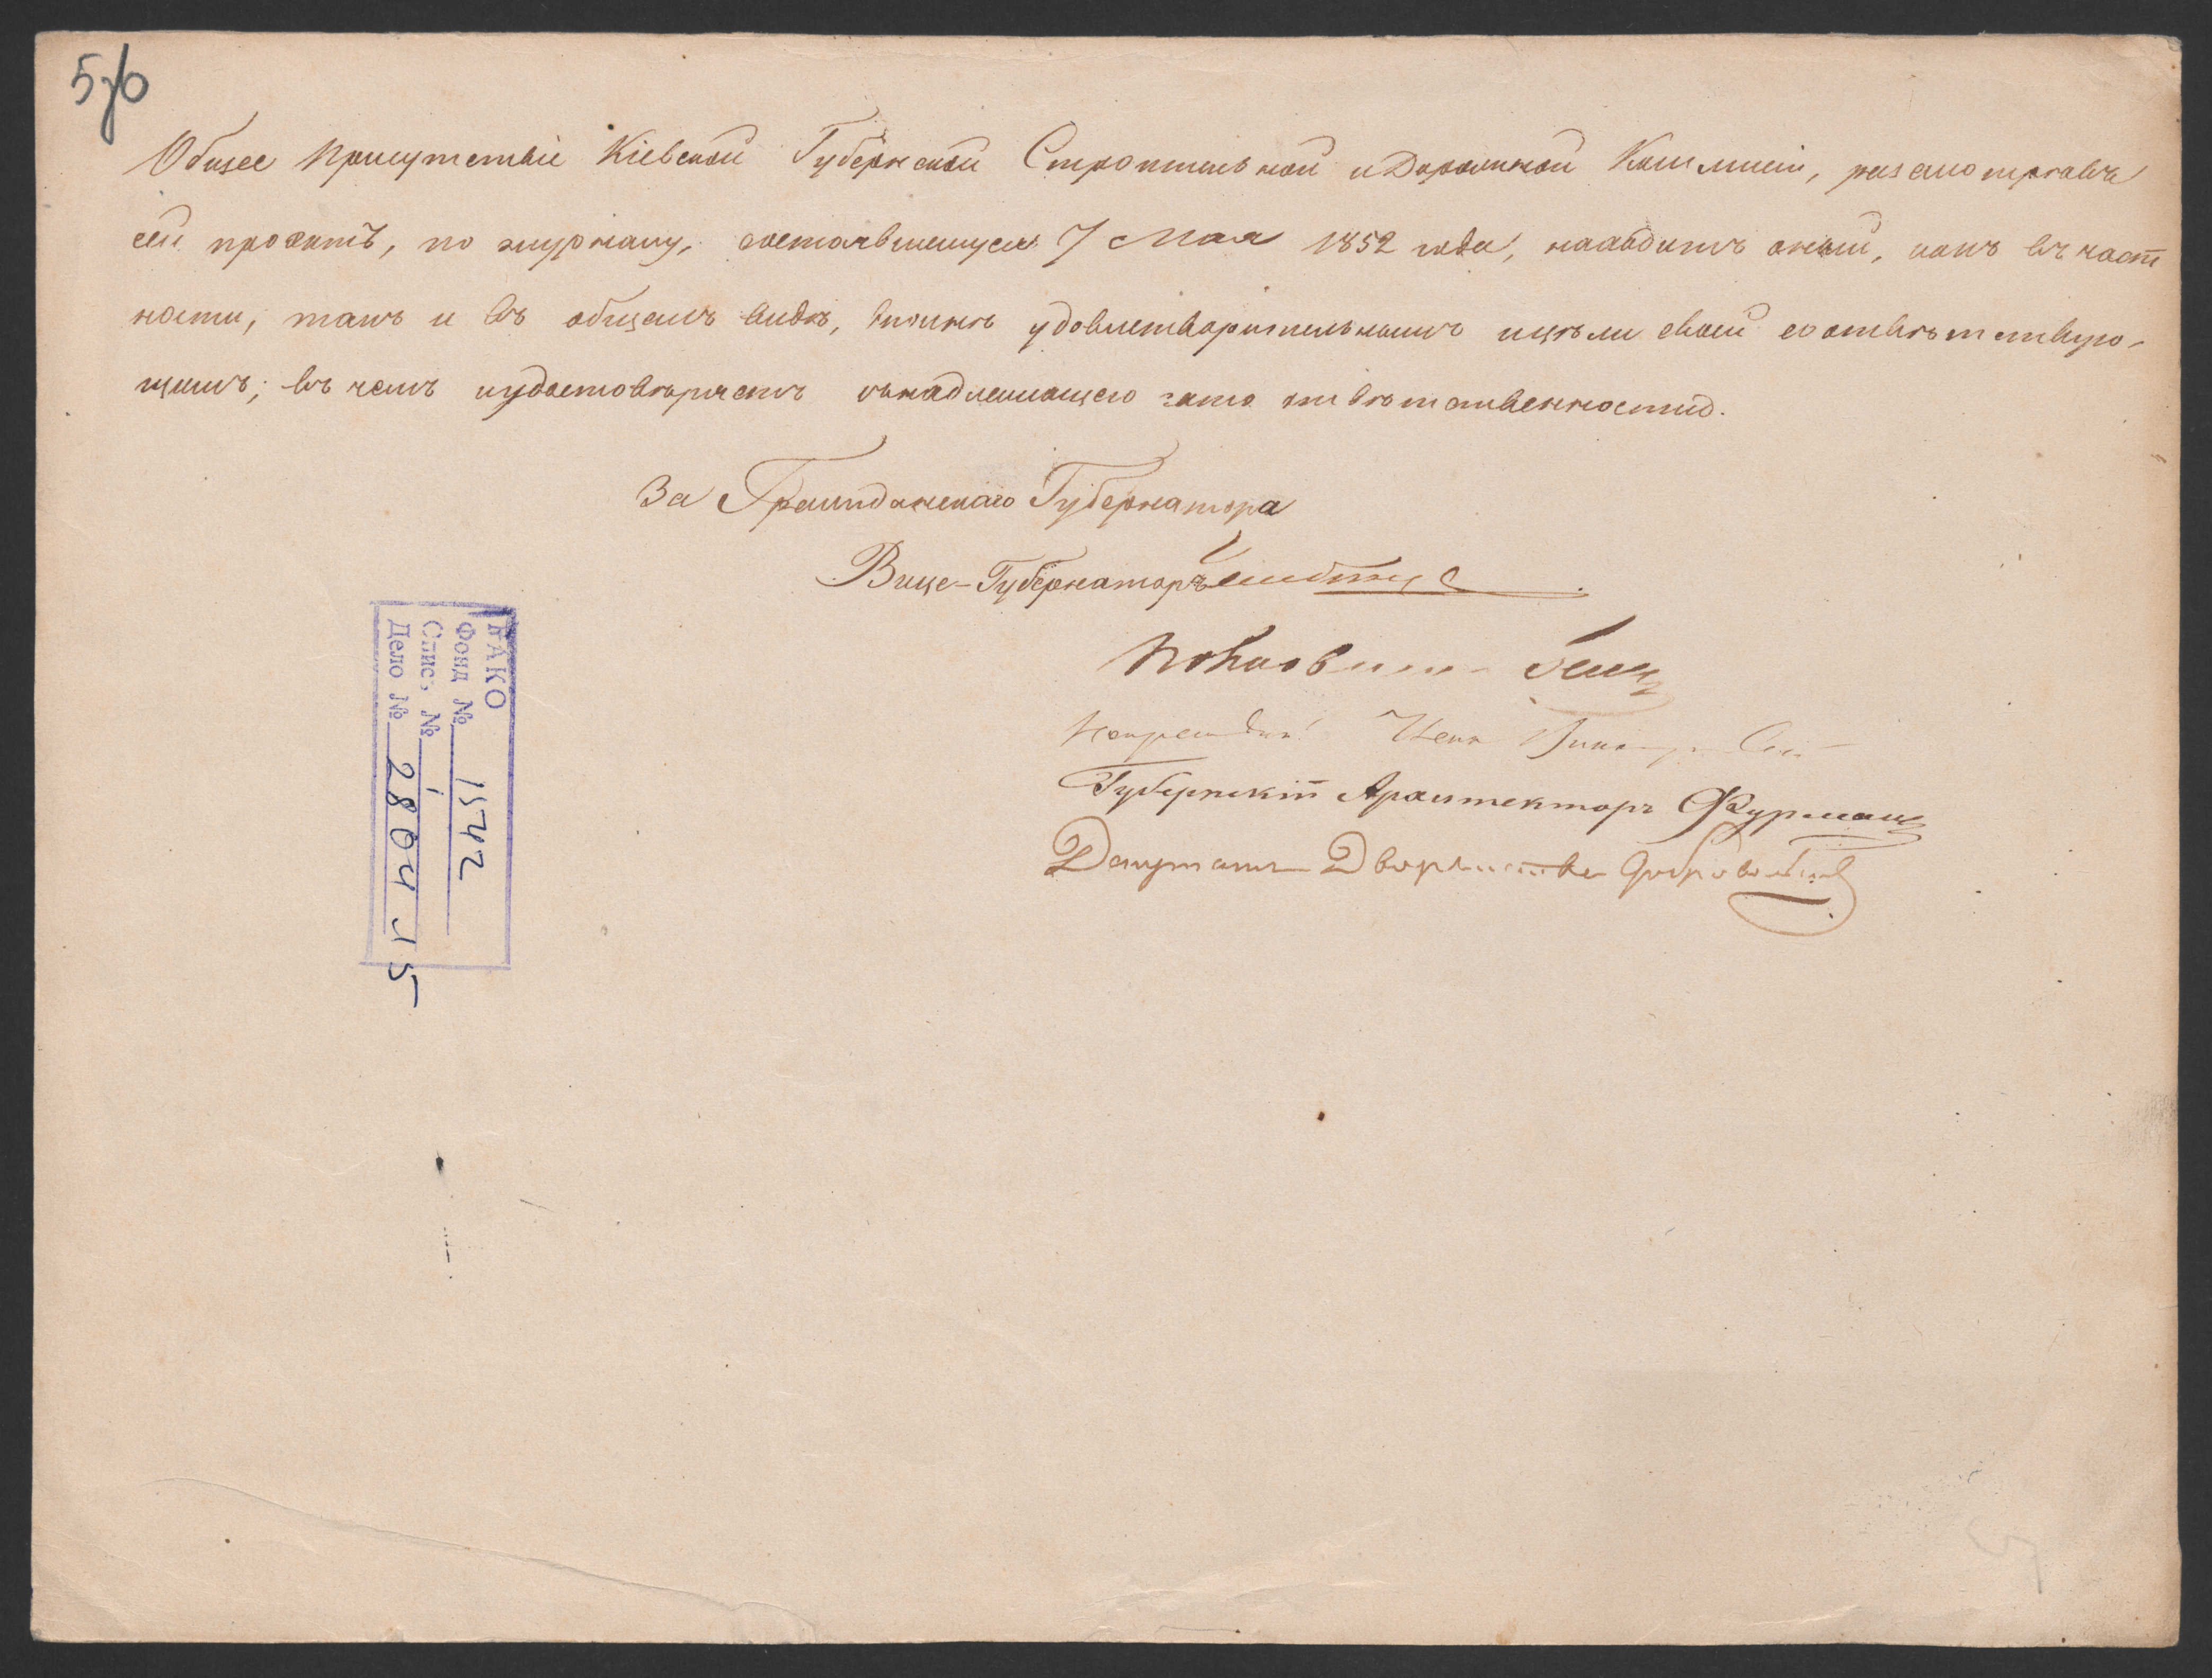 5 об
Общее Присутствіе Кіевской Губернской Строительной и Дорожной Коммисіи, разсмотрѣвъ
сей проэктъ, по журналу, состоявшемуся 7 Мая 1852 года, находитъ оный, какъ въ част
ности, такъ и въ общемъ видѣ, вполнѣ удовлетворительнымъ и цѣли своей соотвѣтствую-
щимъ; въ чемъ и удостовѣряетъ съ надлежащею за то отвѣтственностію.
За Гражданскаго Губернатора
Вице-Губернаторъ
Полковникъ
Непремѣнный Членъ
Губернскій Архитекторъ
Депутатъ Дворянства
КАКО
Фонд № 1542
Опис. № 1
Дело № 280 ч 15